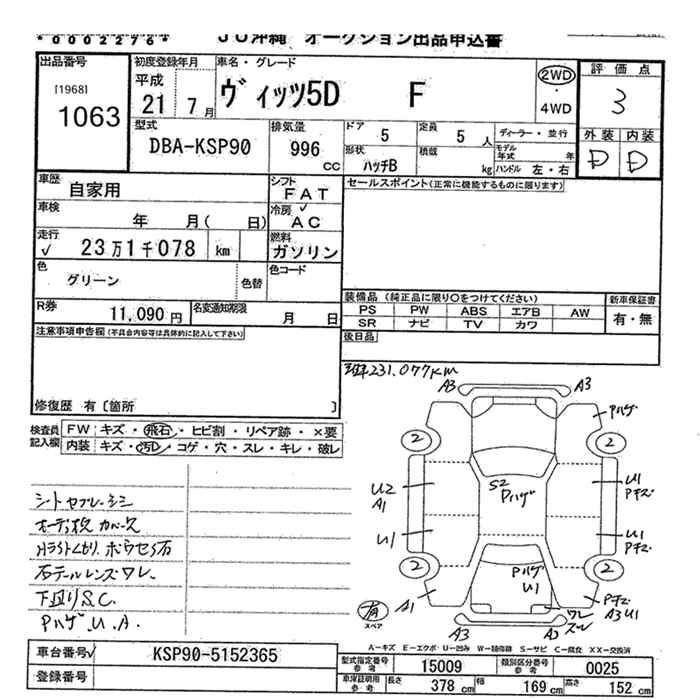 *0002276*
JU沖縄 オークション出品申込書
出品番号 初度登録年月 車名・グレード 評価点
[1968] 平成 2WD
1063 21年 7月 ヴィッツ5D F ・ 3
4WD
型式 排気量 ドア 5 定員 5人 ディーラー・並行 外装 内装
DBA-KSP90 996 cc 形状 ハッチB 積載 kg モデル年式 年 D D
ハンドル 左・右
車歴 自家用 シフト FAT セールスポイント(正常に機能するものに限ります)
車検 年 月( 日) 冷房 ✓ AC
走行 ✓ 23万1千078 km 燃料 ガソリン
色 グリーン 色替 色コード
R券 11,090円 名変通知期限 月 日 装備品(純正品に限り○をつけてください) 新車保証書
PS PW ABS エアB AW 有・無
SR ナビ TV カワ
注意事項申告欄(不具合内容等は具体的に記入して下さい) 後日品
231,077km
修復歴 有〔箇所 〕
検査員 FW キズ・飛石・ヒビ割・リペア跡・×要
記入欄 内装 キズ・汚れ・コゲ・穴・スレ・キレ・破レ
A3 A3
Pハゲ
2 2
S2
Pハゲ
U2 U1
A1 Pキズ
U1 U1
Pキズ
2 2
Pハゲ
U1
A1 Pキズ
A3 U1
ワレ
スレ
有
スペア
A3 A3
石テールレンズワレ
下廻りS.C.
Pハゲ.U.A.
A-キズ E-エクボ U-凹み W-補修跡 S-サビ C-腐食 XX-交換済
車台番号✓ KSP90-5152365 型式指定番号 参考 15009 類別区分番号 参考 0025
登録番号 車庫証明用 参考 長さ 378cm 幅 169cm 高さ 152cm